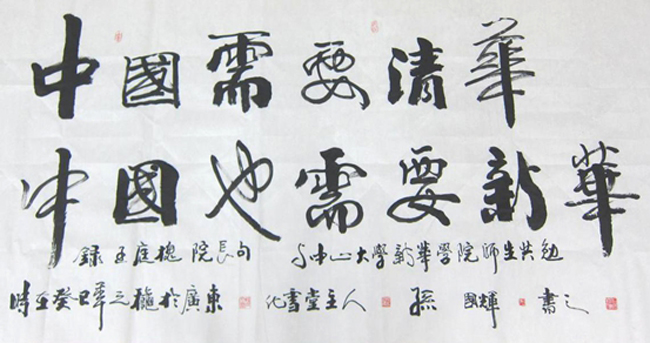 中國需要清華
中國也需要新華
錄王庭槐院長句 与中山大學新華學院師生共勉
時在癸巳年之穐於廣東 化雪堂主人 孫國輝 書之